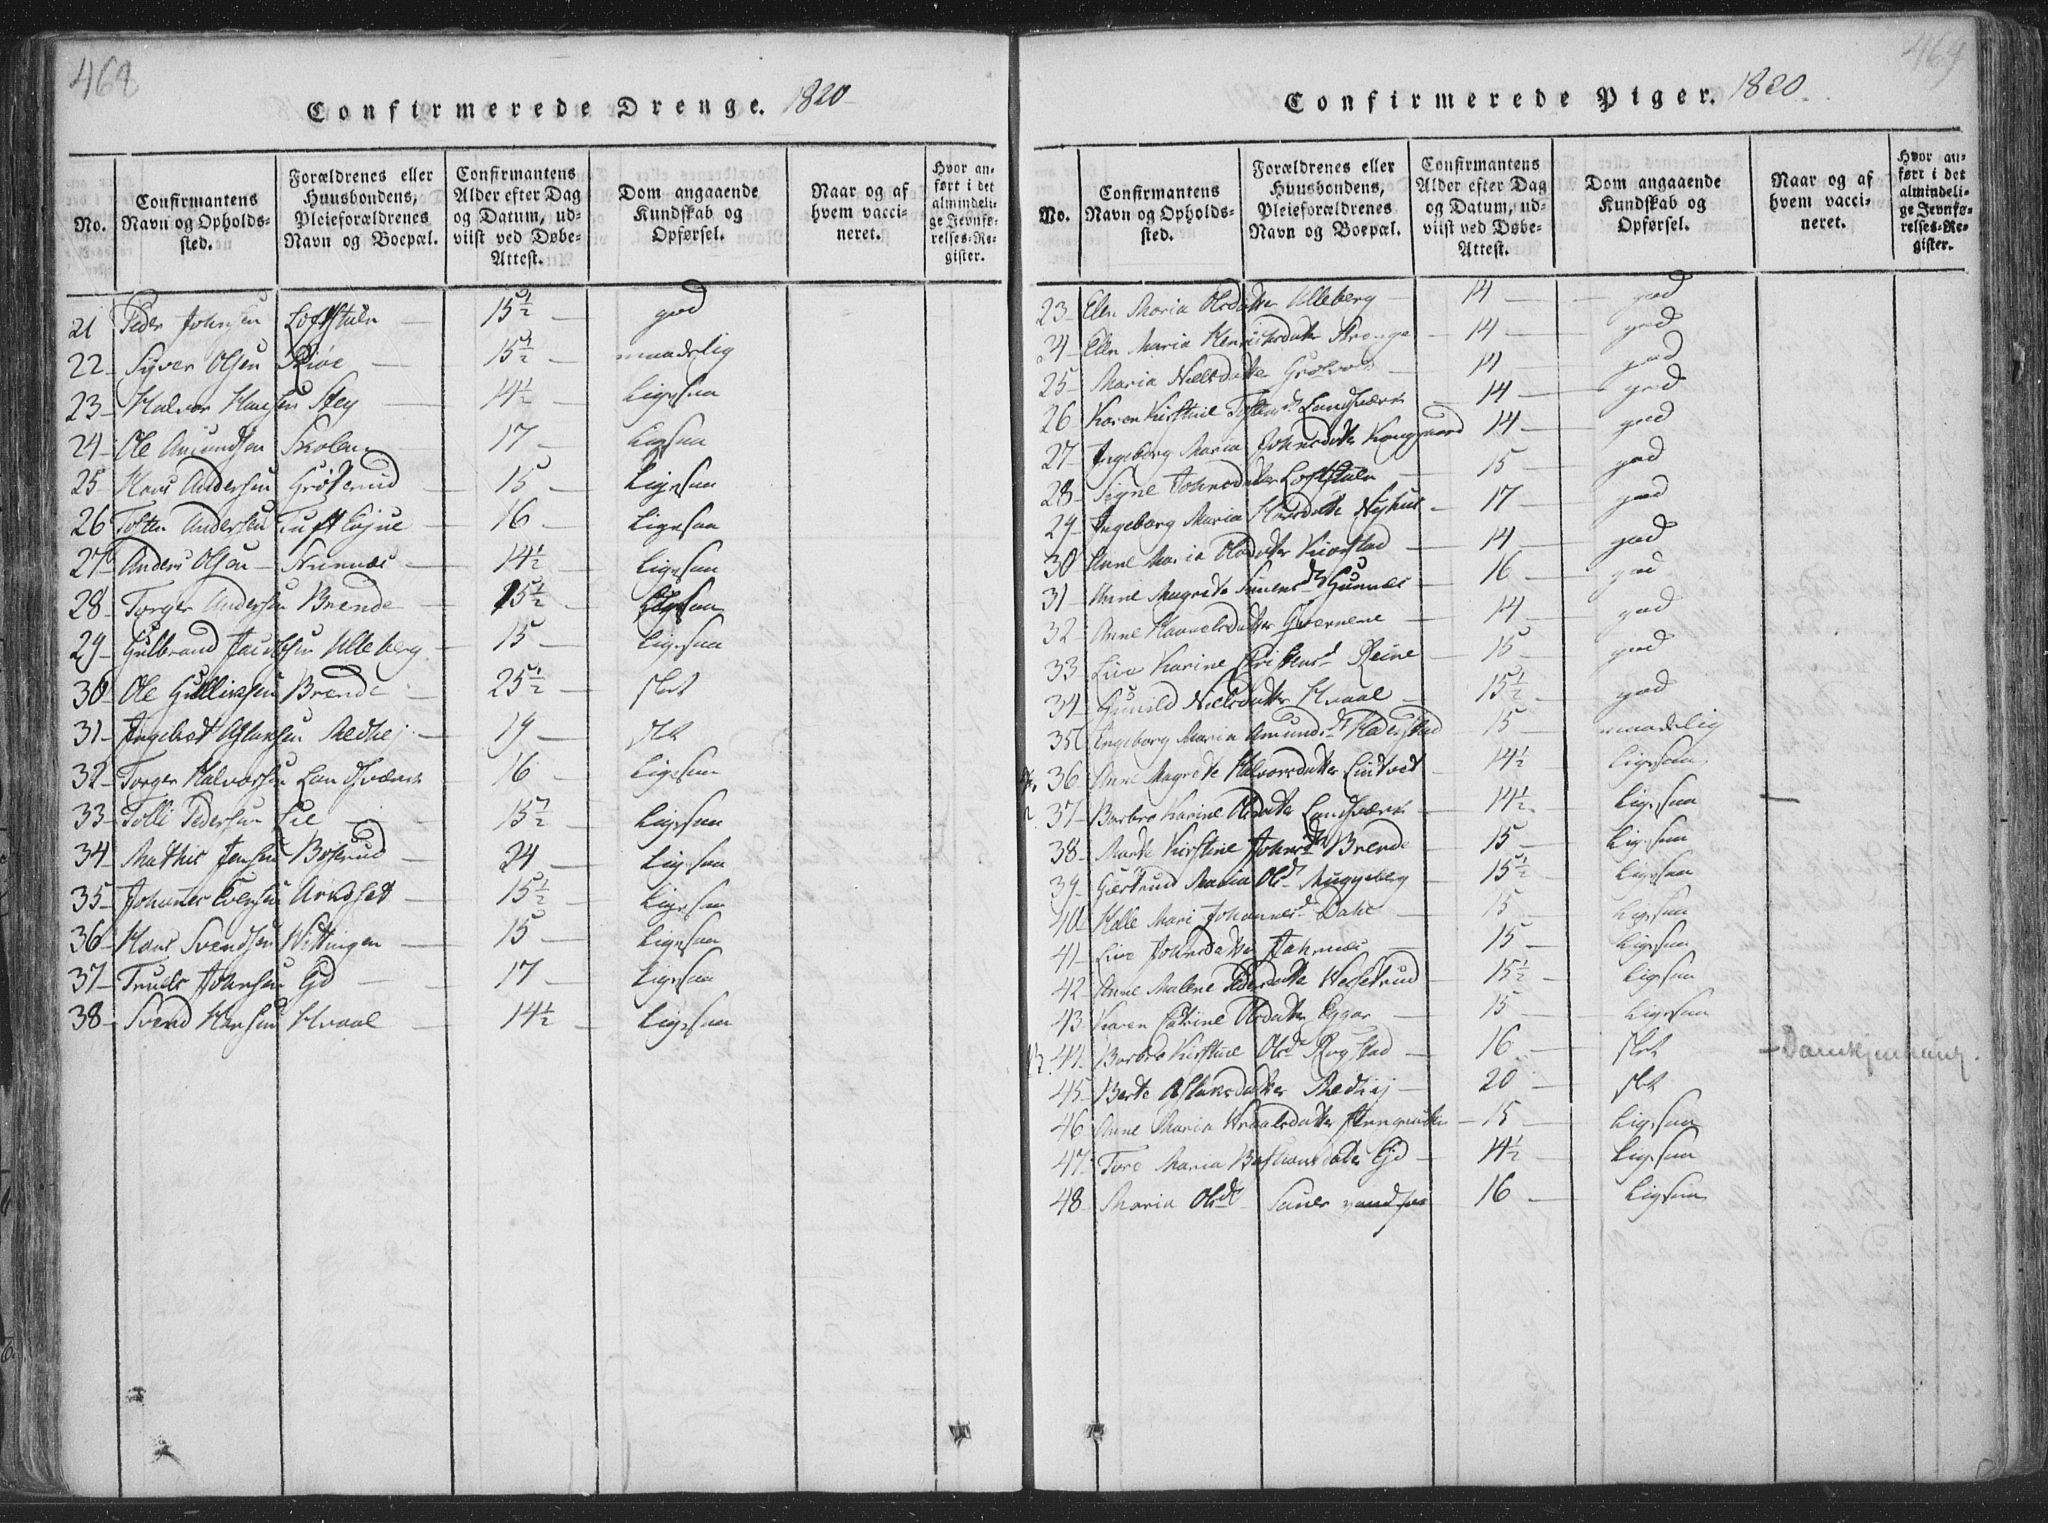 468
Confirmerede Drenge. 1820
No.
Confirmantens Navn og Opholds-sted.
Forældrenes eller Huusbondens, Pleieforældrenes Navn og Boepæl.
Confirmantens Alder efter Dag og Datum, ud-viist ved Døbe-Attest.
Dom angaaende Kundskab og Opførsel.
Naar og af hvem vacci-neret.
Hvor an-ført i det almindeli-ge Jevnfø-relses-Re-gister.
21 Peder Johnsen Loftstuen 15½ god
22 Syver Olsen 15½ maadelig
23 Halvor Hansen Steg 14½ Ligesaa
24 Ole Amundsen Skolen 17 Ligesaa
25 Hans Andersen Gröterud 15 Ligesaa
26 Tosten Andersen Tuft Eyue 16 Ligesaa
27 Anders Olsen 14½ Ligesaa
28 Torger Andersen Brende 15½ Ligesaa
29 Gulbrand Jacobsen Ulleberg 15 Ligesaa
30 Ole Gullixsen Brende 25½ slet
31 Ingebret Aslaksen Medhej 19 slet
32 Torger Halvorsen Landsværk 16 Ligesaa
33 Tolli Pedersen Lie 15½ Ligesaa
34 Mathis Jensen Bokrud 24 Ligesaa
35 Johannes Evensen Arndset 15½ Ligesaa
36 Hans Svendsen Wittingen 15 Ligesaa
37 Truels Johnsen Ejd 17 Ligesaa
38 Svend Hansen Hvaal 14½ Ligesaa
469
Confirmerede Piger. 1820.
No.
Confirmantens Navn og Opholds-sted.
Forældrenes eller Huusbondens, Pleieforældrenes Navn og Boepæl.
Confirmantens Alder efter Dag og Datum, ud-viist ved Døbe-Attest.
Dom angaaende Kundskab og Opførsel.
Naar og af hvem vacci-neret.
Hvor an-ført i det almindeli-ge Jevnfø-relses-Re-gister.
23 Ellen Maria Olsdatter Ulleberg 14 god
24 Ellen Maria Henrichsdatter Strange 14 god
25 Maria Nielsdatter 14 god
26 Karen Kirstine Landsværk 14 god
27 Ingeborg Maria Johnsdatter Konggaard 14 god
28 Signe Johnsdatter Loftstuen 15 god
29 Ingeborg Maria Nyhus 17 god
30 Anne Maria Olsdatter Kiorstad 14 god
31 Anne Magrete Gunnæs 16 god
32 Anne 14 god
33 Live Karine Reine 15 god
34 Gunild Nielsdatter Hvaal 15½ god
35 Ingeborg Maria Amundsdr 15 maadelig
36 Anne Magrete Halvorsdatter Lindved 14½ Ligesaa
37 Barbro Karine Olsdatter Landsværk 14½ Ligesaa
38 Marte Kirstine Johnsdr Brende 15 Ligesaa
39 Giertrud Maria Olsd Muggeberg 15½ Ligesaa
40 Mari Johannesd Dahl 15 Ligesaa
41 Live Johnsdatter 15 Ligesaa
42 Anne Malene Pedersdatter 15½ Ligesaa
43 Karen Catrine Olsdatter Eggar 15 Ligesaa
44 Barbro Kirstine Olsd Rugstad 16 slet
45 Berte Aslaksdatter Medhej 20 slet
46 Anne Maria 15 Ligesaa
47 Tore Maria Bastiansdatter Ejd 14½ Ligesaa
48 Maria Olsdr 16 Ligesaa